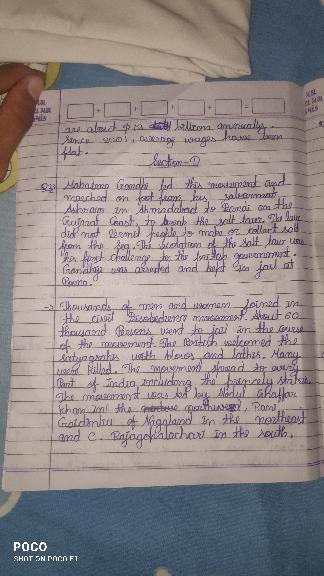 are about $ is billions annually
since 2001, average wages have been
flat.
Section-D
Mahatma Gandhi led this movement and
marched on foot from his sabarmati
Ashram in Ahmadabad to Dandi on the
Gujrat Coast, to break the salt law. The law
did not Permit people to make or collect salt
from the sea. The violation of the salt law was
his first challenge to the British government.
Gandhiji was arrested and kept in jail at
Poona.
→ Thousands of men and women joined in
the civil Disobedience movement. About 60
thousand Persons went to jail in the course
of the movement. The British welcomed the
satyagrahis with blows and lathes. Many
were killed. The movement spread to every
Part of India, including the princely states.
The movement was led by Abdul Ghaffar
Khan in the, Rani
Gaidinliu of Nagaland in the northeast
and C. Rajagopalachari in the south,
POCO
SHOT ON POCO F1